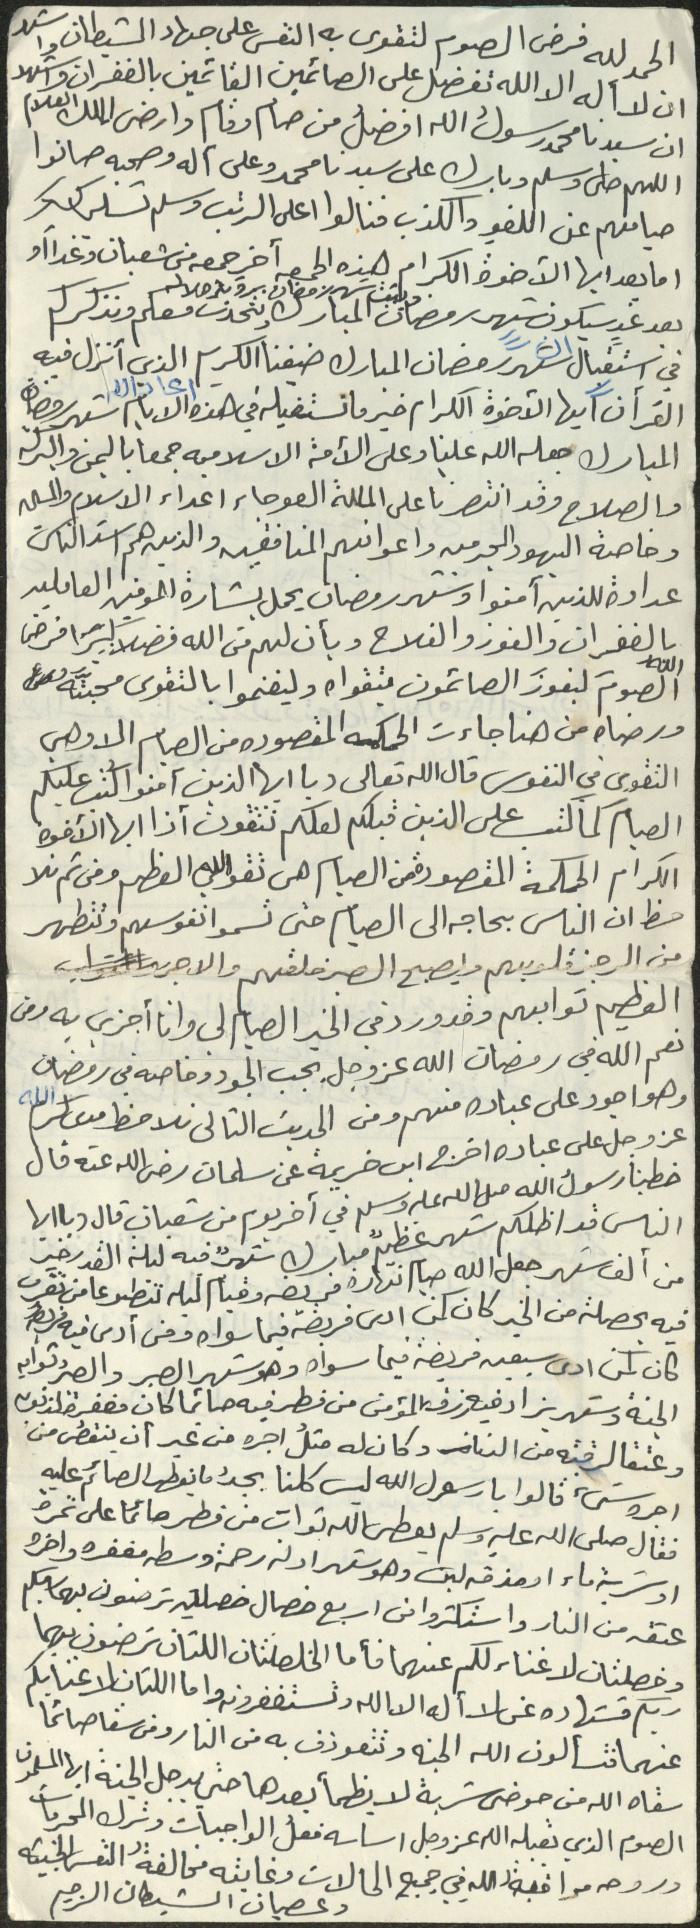 الحمد لله فرض الصوم لتقوى به النفس على جهاد الشيطان واشهد
ان لا أله الا الله تفضل على الصائمين القائمين بالغفران واشهد
ان سيدنا محمد رسولُ الله افضلُ من صام وقام وارضى الملك العلام
اللهم صلى وسلم وبارك على سيدنا محمد وعلى آله وصحبه صانوا
صيامهم عن اللغو والكذب فنالوا اعلى الرتب وسلم تسليماً
اما بعد ايها الأخوة الكرام هذه الجمعه آخر جمعه من شعبان وغداً أو
بعد غدٍ سيكون شهر رمضان المبارك نتحدث معكم ونذكركم
في استقبال شهر رمضان المبارك ضيفنا الكريم الذي أنزل فيه
القرآن أيها الأخوة الكرام خير ما نستقبله في هذه الايام شهر رمضان
المبارك جعله الله علينا وعلى الأمة الاسلاميه جمعا باليمن والبركه
والصلاح وقد انتصرنا على الملة العوجاء اعداء الاسلام
وخاصة اليهود المجرمين واعوانهم المنافقين والذين هم اشد الناس
عداوة للذين آمنوا وشهر رمضان يحمل بشارة المومنين العاملين
بالغفران والفوز والفلاح وبأن لهم من الله فضلاً كبيرا فرض
الله
الصومَ ليفوزَ الصائمون بتقواه وليغنموا بالتقوى محبته
ورضاه من هنا جاءت الحكمه المقصوده من الصيام الا وهي
التقوى في النفوس قال الله تعالى ديا ايها الذين آمنوا كُتب عليكم
الصيام كما كتب على الذين قبلكم لعلكم تتقون أذا ايها الأخوه
الكرام الحكمة المقصودة من الصيام هى تقوى الله العظيم ومن ثم نلا
حظ ان الناس بحاجه الى الصيام حتى تسموا نفوسهم وتتطهر
من الرجز قلوبهم ويصبح الصبر خلقهم والاجر
العظيم ثوابهم وقد ورد في الخبر الصيام لى وانا أجزي به ومن
نعم الله في رمضان الله عز وجل يحب الجود وخاصه في رمضان
وهو اجود على عباده منهم ومن الحديث التالى نلاحظ مدى كرم الله
عز وجل على عباده اخرج ابن خزيمة عن سلمان رضى الله عنه قال
خطبنا رسولُ الله صلى الله عليه وسلم في آخر يوم من شعبان قال ديا ايها
الناس قد اظلكم شهر عظيمٌ مبارك شهرٌ فيه ليلة القدر خير
من ألف شهر جعل الله صيام نهاره فريضه وقيام ليله تطوعا من تقرب
فيه بخصلة من الخير كان كمن ادى فريضة فيما سواه ومن أدى فيه فريضة
كان كمن ادى سبعين فريضة فيما سواه وهو شهر الصبر والصبر ثوابه
الجنة وشهر يزاد فيه رزق المؤمن من فطر فيه صائما كان مغفرة لذنوبه
وعتقا لرقبته من النار وكان له مثلُ اجره من غير أن ينتقصُ من
اجره شئ قالوا يا رسول الله ليس كلنا يجدُ ما يفطر الصائم عليه
فقال صلى الله عليه وسلم يعطى الله ثواب من فطر صائما على تمرة
او شربة ماء او مذقه لبن وهو شهر اوله رحمة وسطه مغفره واخره
عتقه من النار واستكثروا من اربع خصال خصلتين ترضون بهما ربكم
وخصلتان لا غناء لكم عنهما فأما الخصلتان اللتان ترضون بهما
ربكم فشهاده عن لا أله الا الله وتستغفرونه واما اللتان لا غنا بكم
عنهما فتسألون الله الجنه وتتعوذن به من النار ومن سقا صائما
سقاه الله من حوضى شربة لا يظمأ بعدها حتى يدخل الجنة ايها المسلمون
الصوم الذي يقبله الله عز وجل اساسه فعلُ الواجبات وترك المحرمات
وروحه موافقة الله في جميع الحالات وغايته مخالفة النفس الخبيثه
وعصيان الشيطان الرجيم